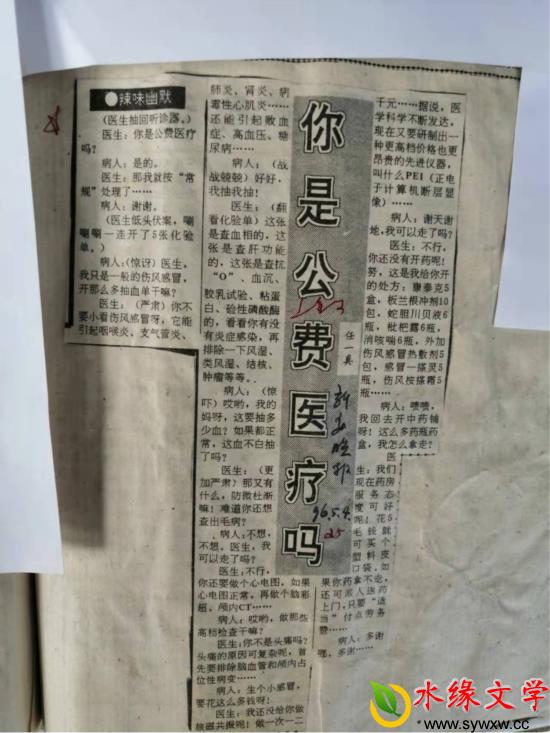 ●辣味幽默
(医生抽回听诊器。)
医生：你是公费医疗
吗？
病人：是的。
医生：那我就按“常
规”处理了……
病人：谢谢。
(医生低头伏案，唰
唰唰一连开了5张化验
单。)
病人：(惊讶)医生，
我只是一般的伤风感冒，
开那么多抽血单干嘛？
医生：(严肃)你不
要小看伤风感冒呀，它能
引起咽喉炎、支气管炎、
肺炎、肾炎、病
毒性心肌炎……
还能引起败血
症、高血压、糖
尿病……
病人：(战
战兢兢)好好，
我抽我抽！
医生：(翻
看化验单)这张
是查血相的，这
张是查肝功能
的，这张是查抗
“O”、血沉、
胶乳试验、粘蛋
白、硷性磷酸酶
的，看看你有没
有炎症感染，再
排除一下风湿、
类风湿、结核、
肿瘤等等。
病人：(惊
吓)哎哟，我的
妈呀，这要抽多
少血？如果都正
常，这血不白抽
了吗？
医生：(更
加严肃)那又有
什么，防微杜渐
嘛！难道你还想
查出毛病？
病人：不想，
不想，医生，我
可以走了吗？
医生：不行，
你还要做个心电图，如果
心电图正常，再做个脑彩
超、颅内CT……
病人：哎哟，做那些
高档检查干嘛？
医生：你不是头痛吗？
头痛的原因可复杂呢，首
先要排除脑血管和颅内占
位性病变……
病人：生个小感冒，
要花这么多钱呀！
医生：我还没给你做
核磁共振呢！做一次一二
你是公费医疗吗
任一具
96.5.4.
千元……据说，医
学科学不断发达，
现在又要研制出一
种更高档价格也更
昂贵的先进仪器，
叫什么PEI（正电
子计算机断层显
像）……
病人：谢天谢
地，我可以走了吗？
医生：不行，
你还没有开药呢！
努，这是我给你开
的处方：康泰克5
盒，板兰根冲剂10
包，蛇胆川贝液6
瓶，枇杷露6瓶，
消咳喘6瓶，外加
伤风感冒热敷剂5
包，感冒一搽灵5
瓶，伤风按搽霜5
瓶……
病人：啧啧，
我回去开中药铺
呀！这么多药瓶药
盒，我怎么拿走？
医
生：我们
现在药房
服务态
度可好
呢！花5
毛钱就
可买个
塑料皮
口袋。如
果你药拿不走，
还可派人送药
上门，只要“适
当”付点劳务
费……
病人：多谢
嗯，多谢……
水缘文学
www.sywxw.cc